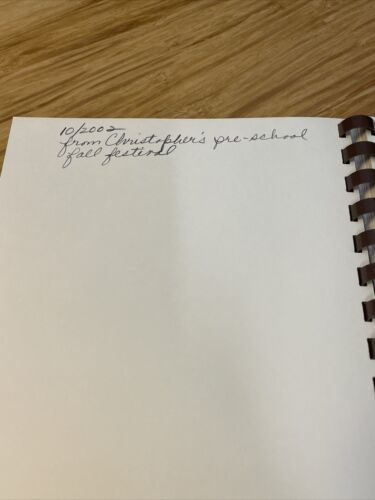 10/2002
from Christopher's pre-school
fall festival